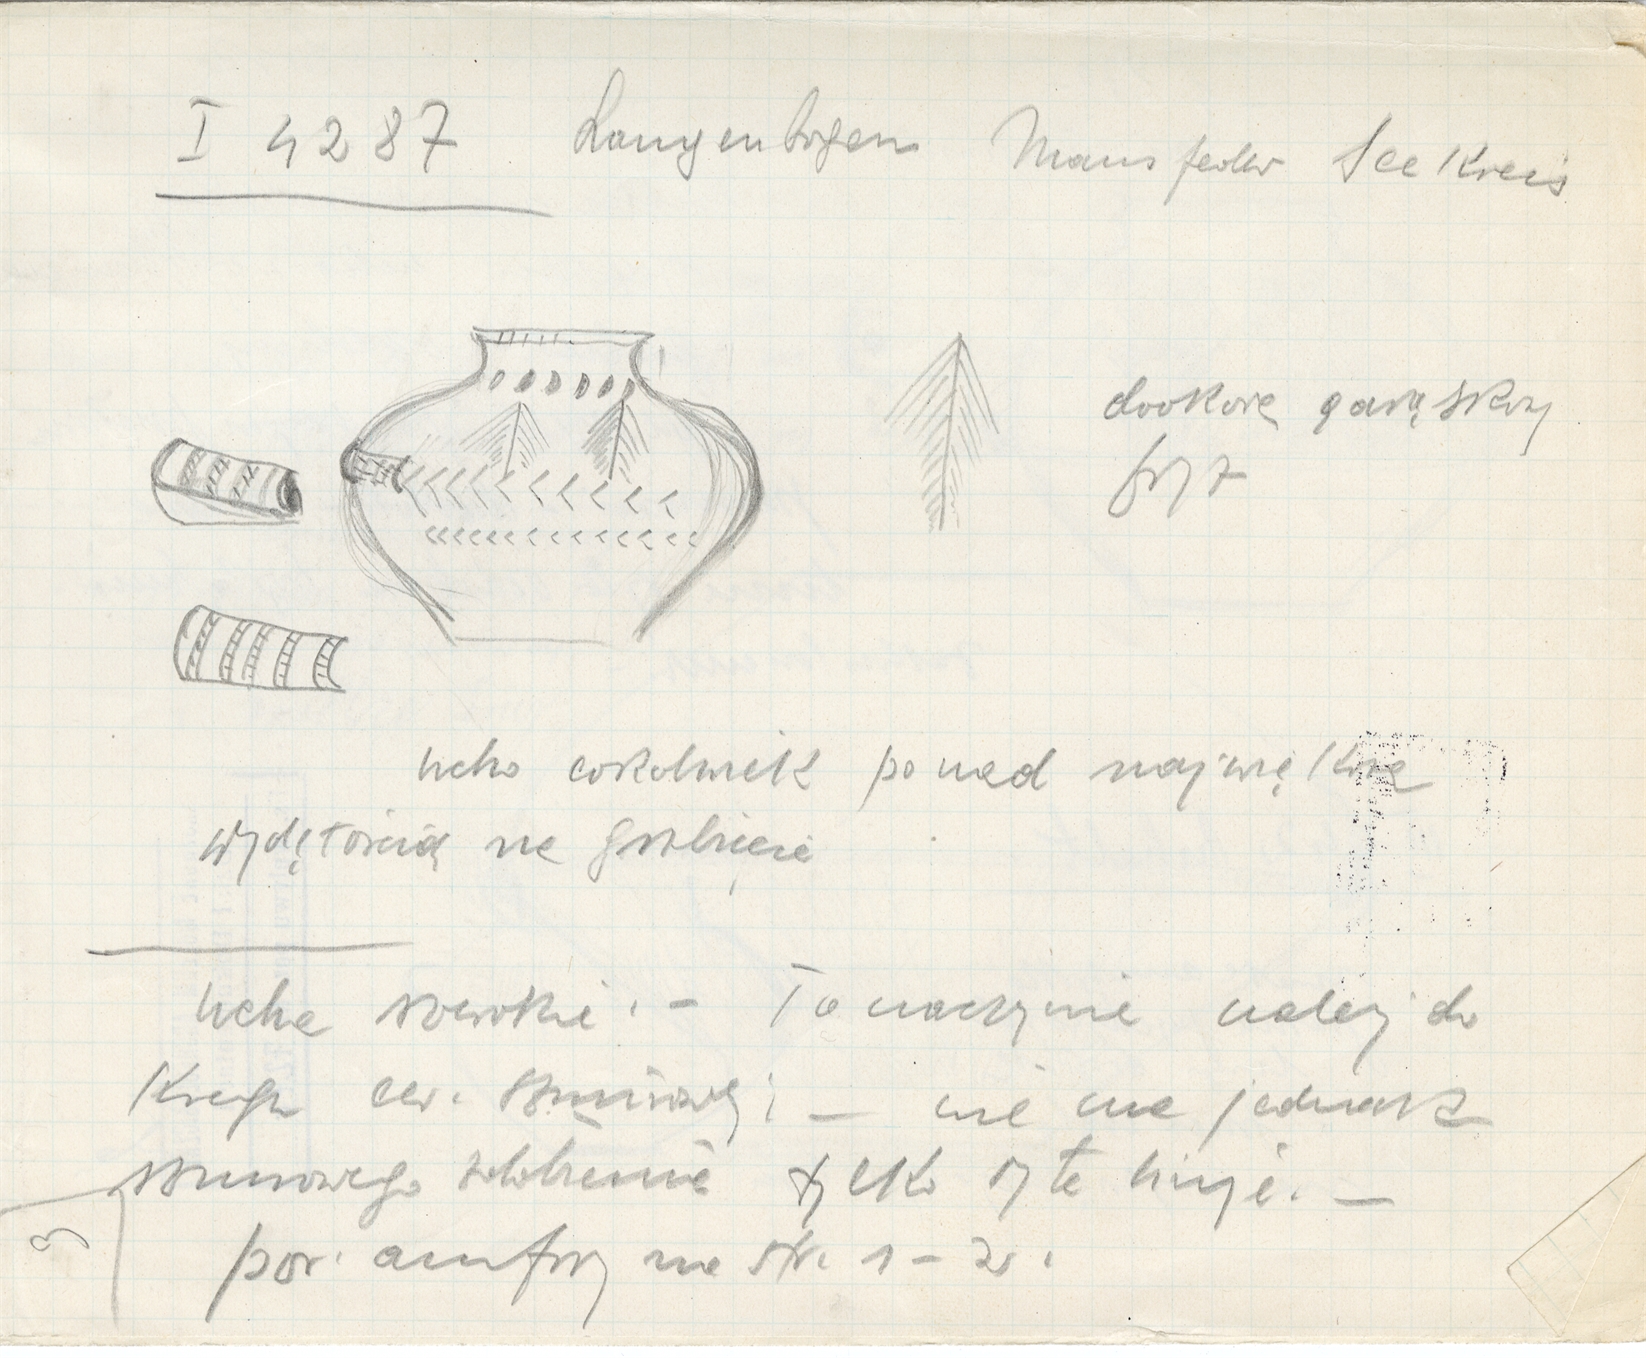 I 4287 Langenbogen Mansfelder See Kreis
dookoła garę szkoy
fryz
ucho cokolwiek ponad największą
wydętością na grzbiecie
Ucha szerokie. – To naczynie należy do
Kręgu cer. sznurowej; – nie ma jednak
sznurowego zdobienia tylko ryte linje. –
por. amfory na str. 1–20.